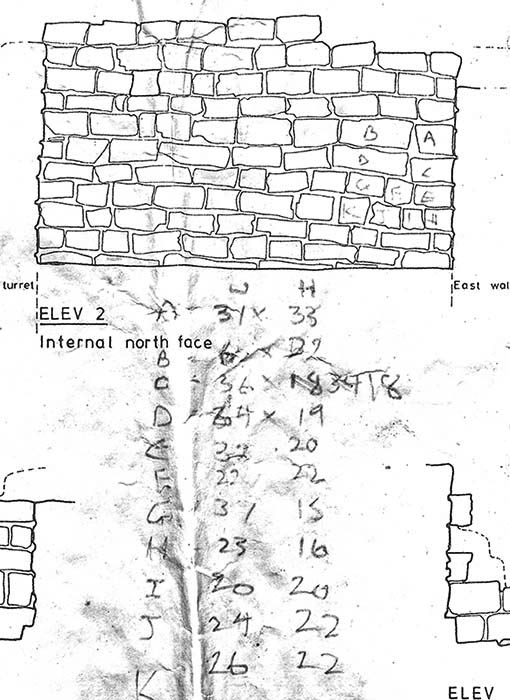 B A
D C
G F E
K J I H
turret East wal
W H
ELEV 2
A 31 x 33
Internal north face
B x 32
C 36 x 18 34 18
D 64 x 19
E 32 20
F 22 22
G 31 15
H 23 16
I 20 20
J 24 22
K 26 22
ELEV